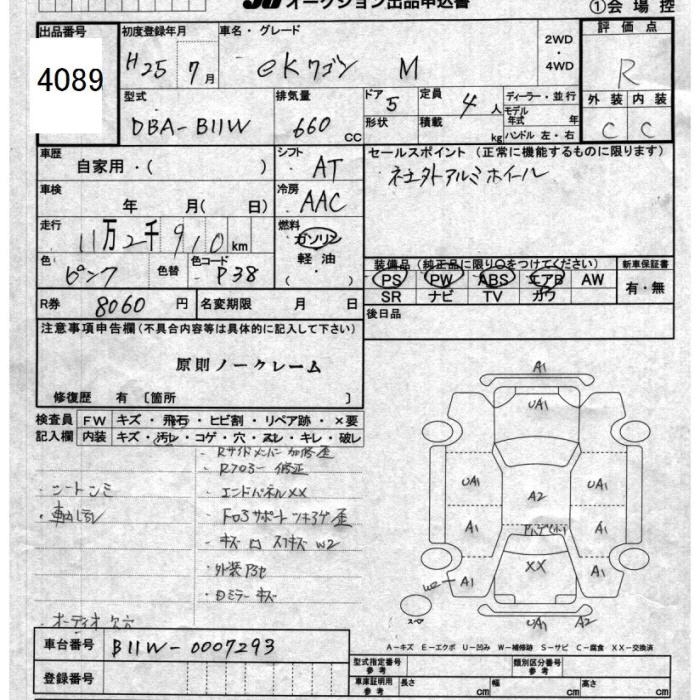 オークション出品申込書
①会場控
出品番号 4089
初度登録年月 H25 7月
車名・グレード eKワゴン M
2WD・4WD
評価点 R
外装 C 内装 C
型式 DBA-B11W
排気量 660 CC
ドア 5 形状
定員 4人 積載 kg
ディーラー・並行
モデル年式 年
ハンドル 左・右
車歴 自家用・( )
シフト AT
セールスポイント (正常に機能するものに限ります)
社外アルミホイール
車検 年 月( 日)
冷房 AAC
走行 11万2千910 km
燃料 ガソリン・軽油・( )
色 ピンク 色替 色コード P38
装備品 (純正品に限り○をつけてください)
PS PW ABS エアB AW
SR ナビ TV カワ
新車保証書 有・無
R券 8060 円 名変期限 月 日
後日品
注意事項申告欄 (不具合内容等は具体的に記入して下さい)
原則ノークレーム
修復歴 有 〔箇所 〕
検査員記入欄
FW キズ・飛石・ヒビ割・リペア跡・×要
内装 キズ・汚レ・コゲ・穴・スレ・キレ・破レ
Rサイドメンバー 加修歪
Rフロアー 修正
・シートシミ
・エンドパネルXX
・車内汚レ
・外装
・オーディオ欠品
A1
UA1
UA1 A2 UA1
A1 A1
XX
W2 A1 A1
スペア
UA1 A2
A-キズ E-エクボ U-凹み W-補修跡 S-サビ C-腐食 XX-交換済
車台番号 B11W-0007293
登録番号
型式指定番号 参考
類別区分番号 参考
車庫証明用 参考 長さ cm 幅 cm 高さ cm